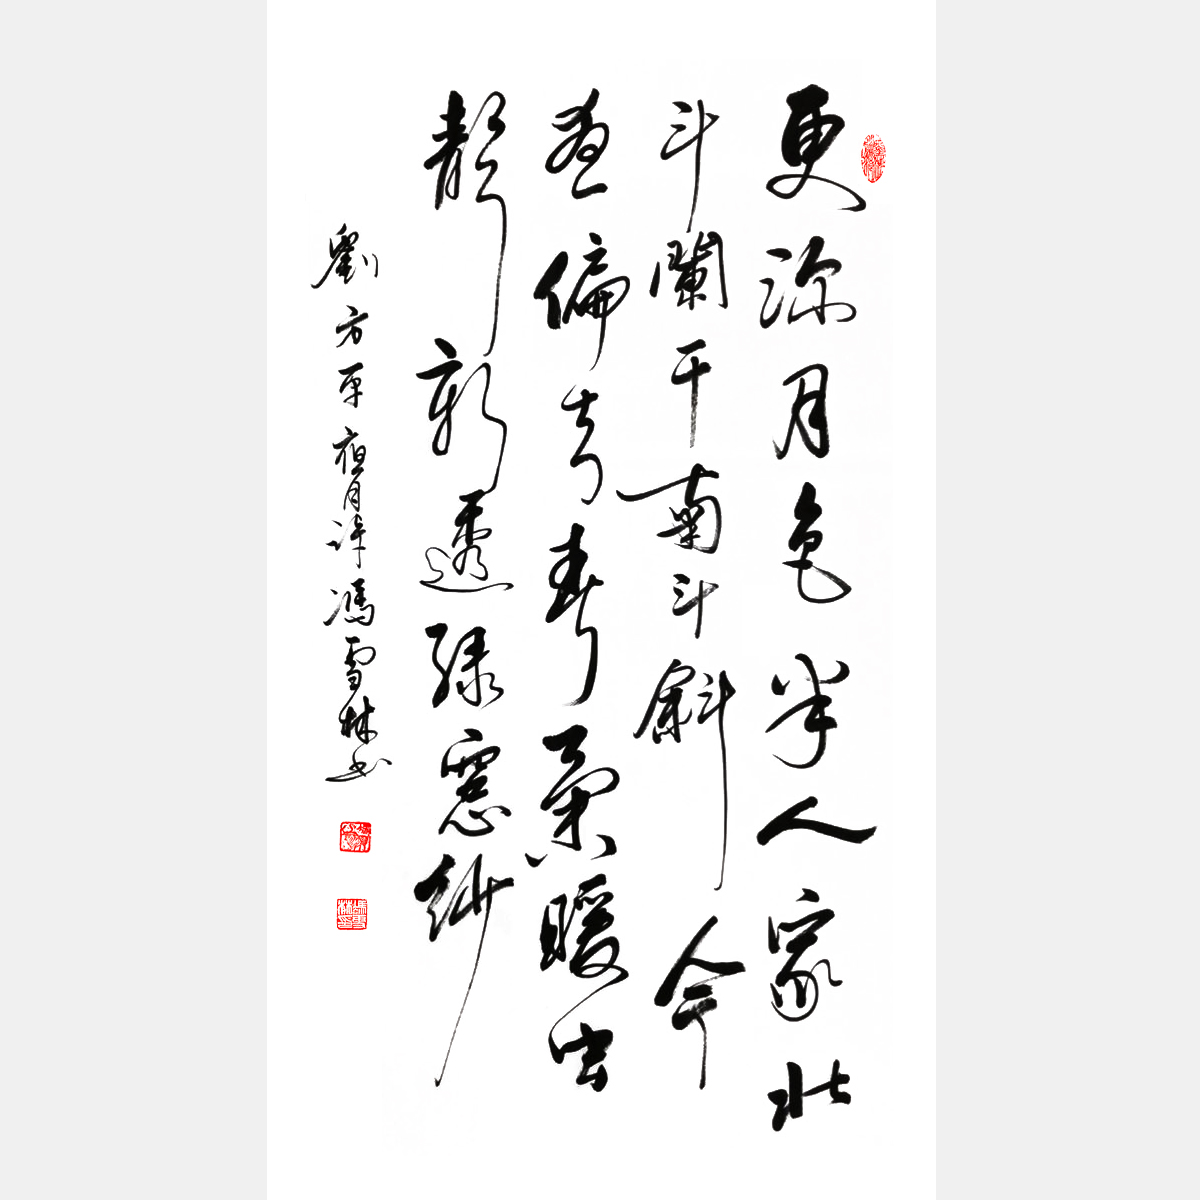 更深月色半人家北
斗闌干南斗斜今
夜偏知春氣暖虫
聲新透綠窻紗
劉方平夜月詩馮雪林书